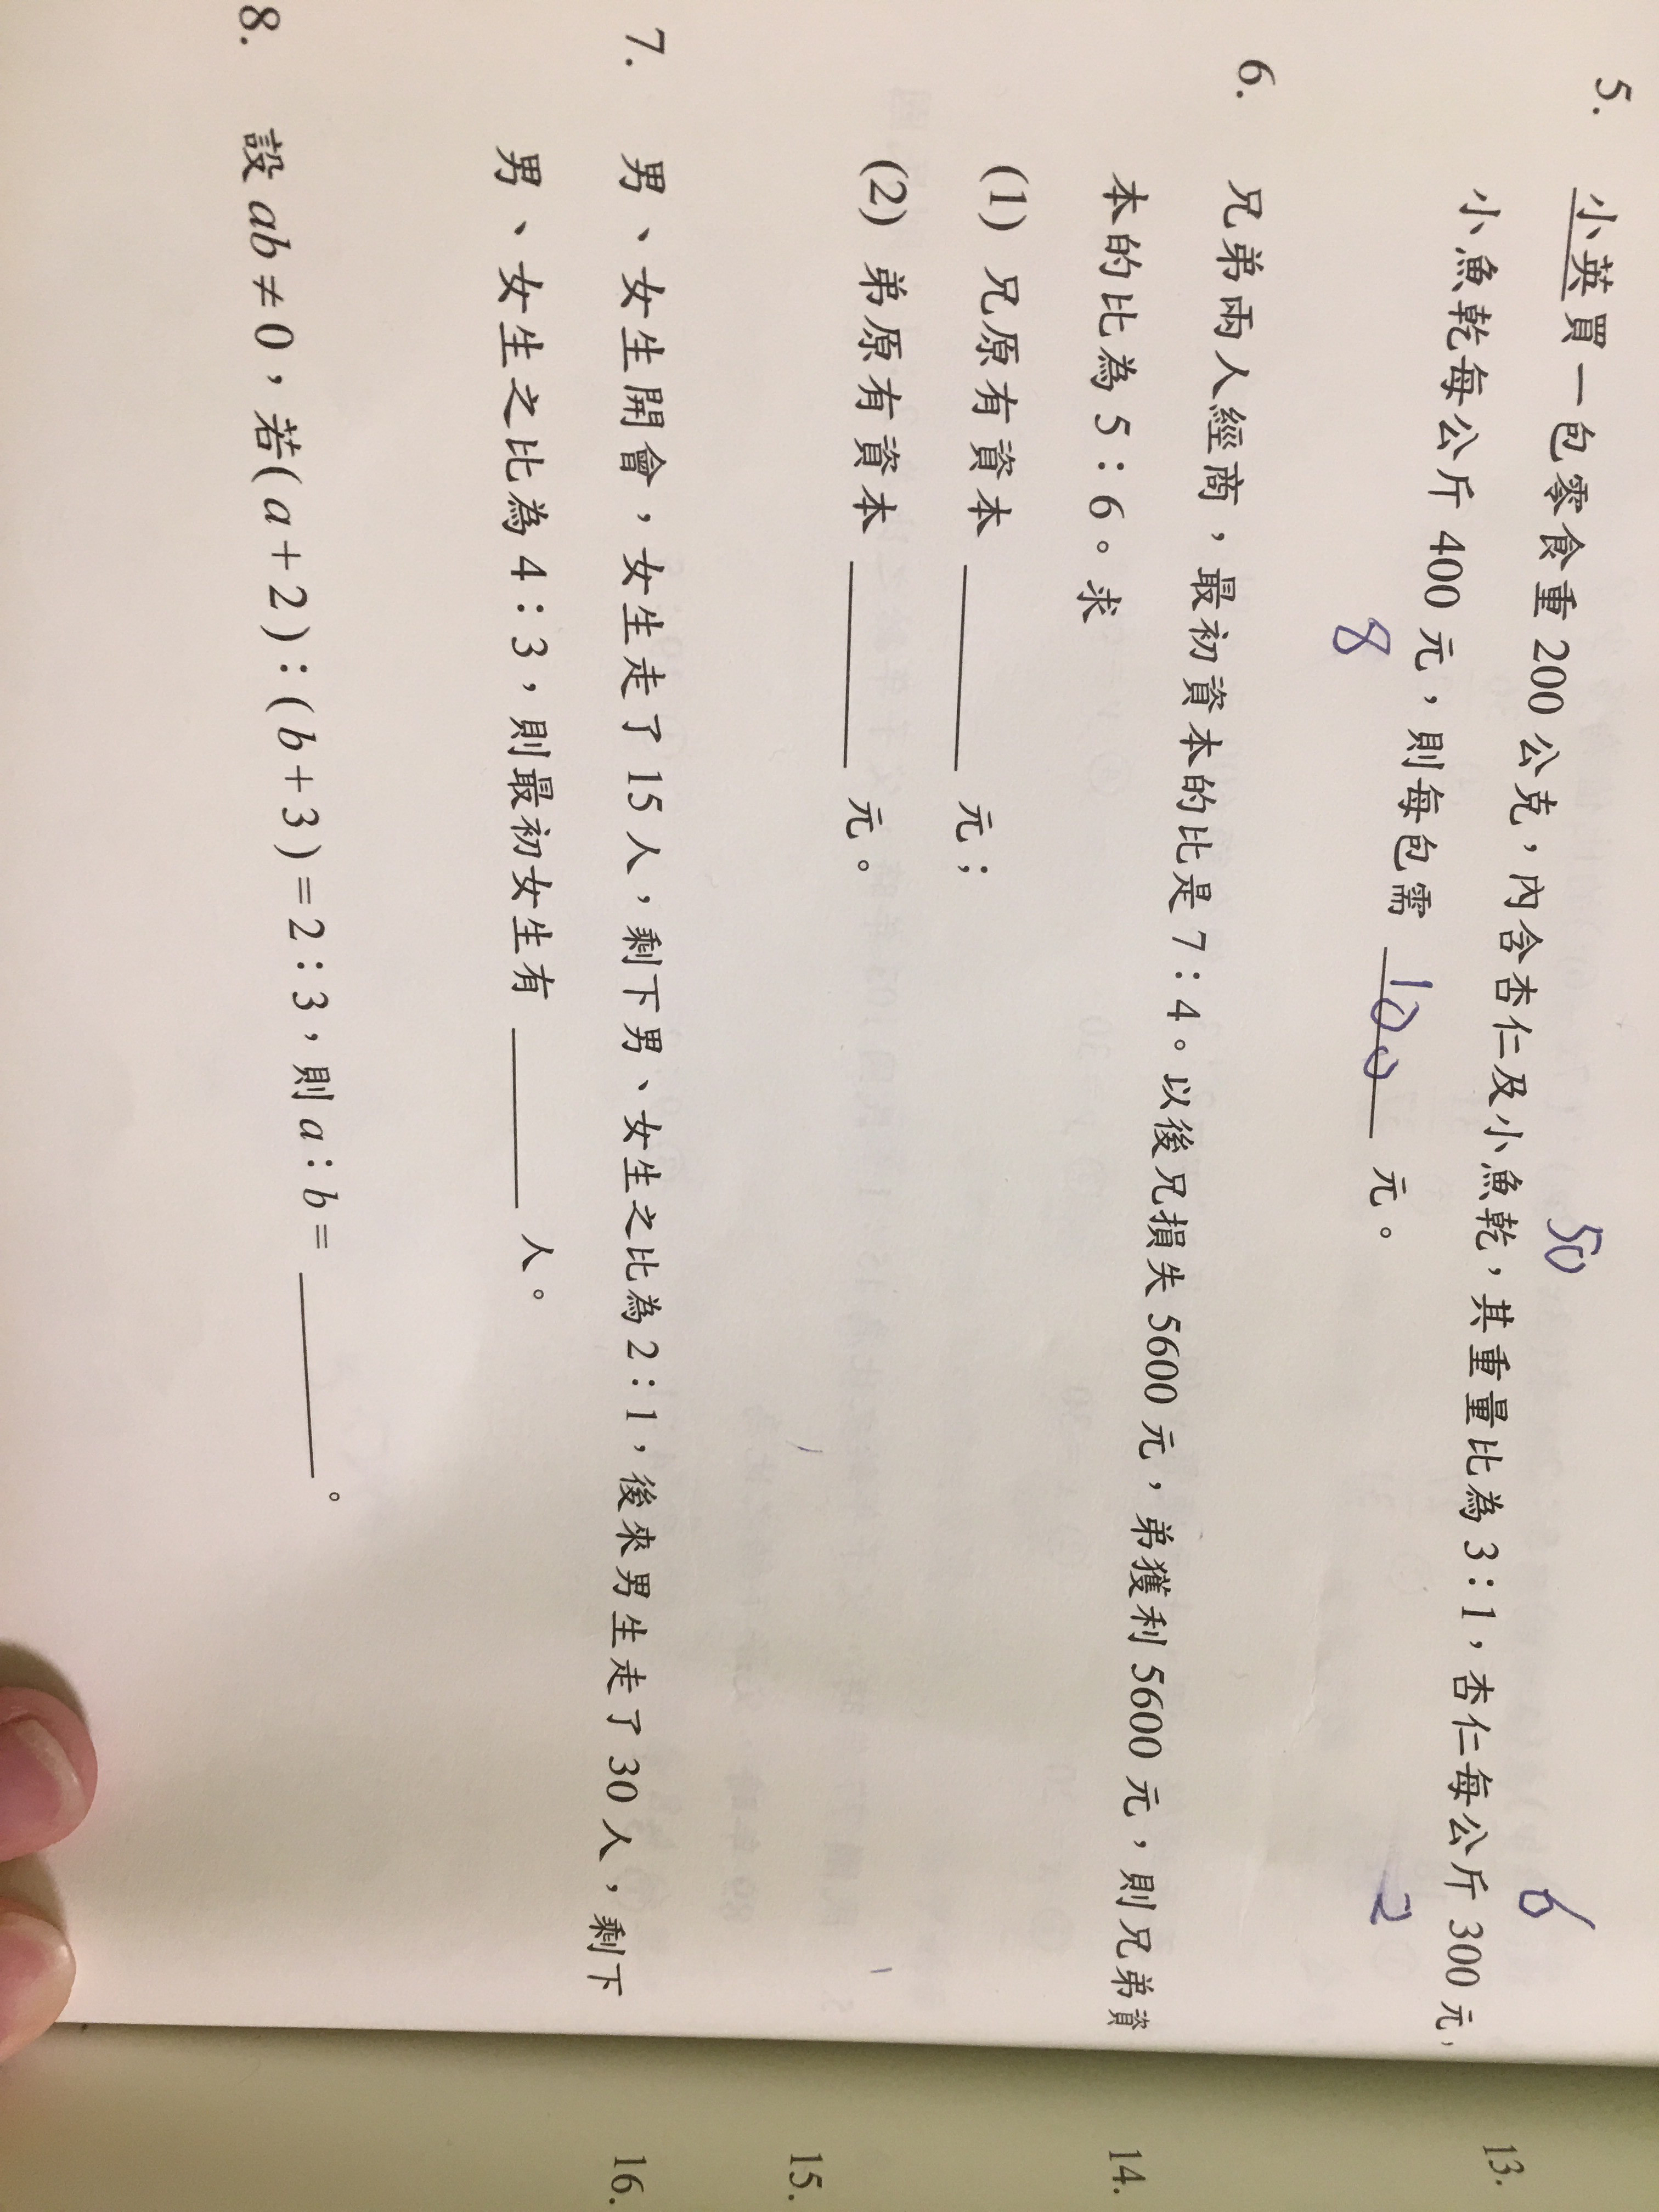 5. 小英買一包零食重200公克，內含杏仁及小魚乾，其重量比為3：1，杏仁每公斤300元，
50
6
小魚乾每公斤400元，則每包需 100 元。
8
2
6. 兄弟兩人經商，最初資本的比是7：4。以後兄損失5600元，弟獲利5600元，則兄弟資
本的比為5：6。求
(1) 兄原有資本＿＿＿＿元；
(2) 弟原有資本＿＿＿＿元。
7. 男、女生開會，女生走了15人，剩下男、女生之比為2：1，後來男生走了30人，剩下
男、女生之比為4：3，則最初女生有＿＿＿＿人。
8. 設ab≠0，若(a+2)：(b+3)=2：3，則a：b=＿＿＿＿。
13.
14.
15.
16.